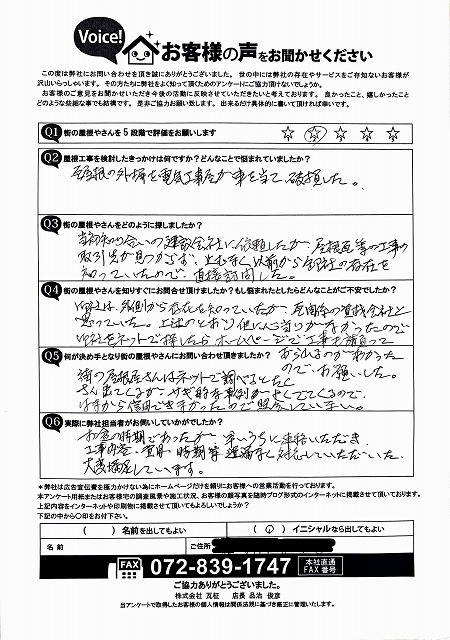 Voice!
お客様の声をお聞かせください
この度は弊社にお問い合わせを頂き誠にありがとうございます。世の中には弊社の存在やサービスをご存知ないお客様が
沢山いらっしゃいます。その方たちに弊社をよく知って頂くためのアンケートにご協力頂けないでしょうか。
お客様のご意見をお聞かせいただき今後の活動に反映させていただきたいと考えております。良かったこと、嬉しかったこと
どのような些細な事でも結構です。是非ご協力お願い致します。出来るだけ具体的に書いて頂ければ幸いです。
Q1 街の屋根やさんを5段階で評価をお願いします
Q2 屋根工事を検討したきっかけは何ですか?どんなことで悩まれていましたか?
屋根の外構を電気工事屋が車を当て、破損した。
Q3 街の屋根やさんをどのように探しましたか?
当初知り合いの建設会社に依頼したが、屋根瓦等の工事の
取引先が見つからず、止むなく以前から御社の存在を
知っていたので、直接訪問した。
Q4 街の屋根やさんを知りすぐにお問合せ頂けましたか?もし悩まれたとしたらどんなことがご不安でしたか?
御社は、以前から存在を知っていたが、瓦関係の資材会社と
思っていた。上述のとおり他に心当りがなかったので
御社をネットで探したらホームページで工事も請負って
おられるのがわかった
ので、お願いした。
Q5 何が決め手となり街の屋根やさんにお問い合わせ頂きましたか?
街の屋根屋さんはネットで調べるとたく
さん出てくるが、サギ的な事例がよくでてくるので、
はすから信用できなかったので
Q6 実際に弊社担当者がお伺いしていかがでしたか?
お盆の時期であったが、早いうちに連絡いただき、
工事内容・費用・時期等 迅速に対応していただいた。
大変満足しています。
*弊社は広告宣伝費を極力かけない為にホームページだけを頼りにお客様への営業活動を行っております。
本アンケート用紙またはお客様宅の調査風景や施工状況、お客様の顔写真を随時ブログ形式のインターネットに掲載させて頂いております。
上記内容をインターネットや印刷物に掲載させて頂いてもよろしいでしょうか?
下記の中から○印をお付け下さい。
( ) 名前を出してもよい ( ○ ) イニシャルなら出してもよい
名前 ご住所
FAX 072-839-1747 本社直通 FAX番号
ご協力ありがとうございました。
株式会社 瓦征 店長 品治 俊彦
当アンケートで取得したお客様の個人情報は関係法規に基づき厳正に管理いたします。